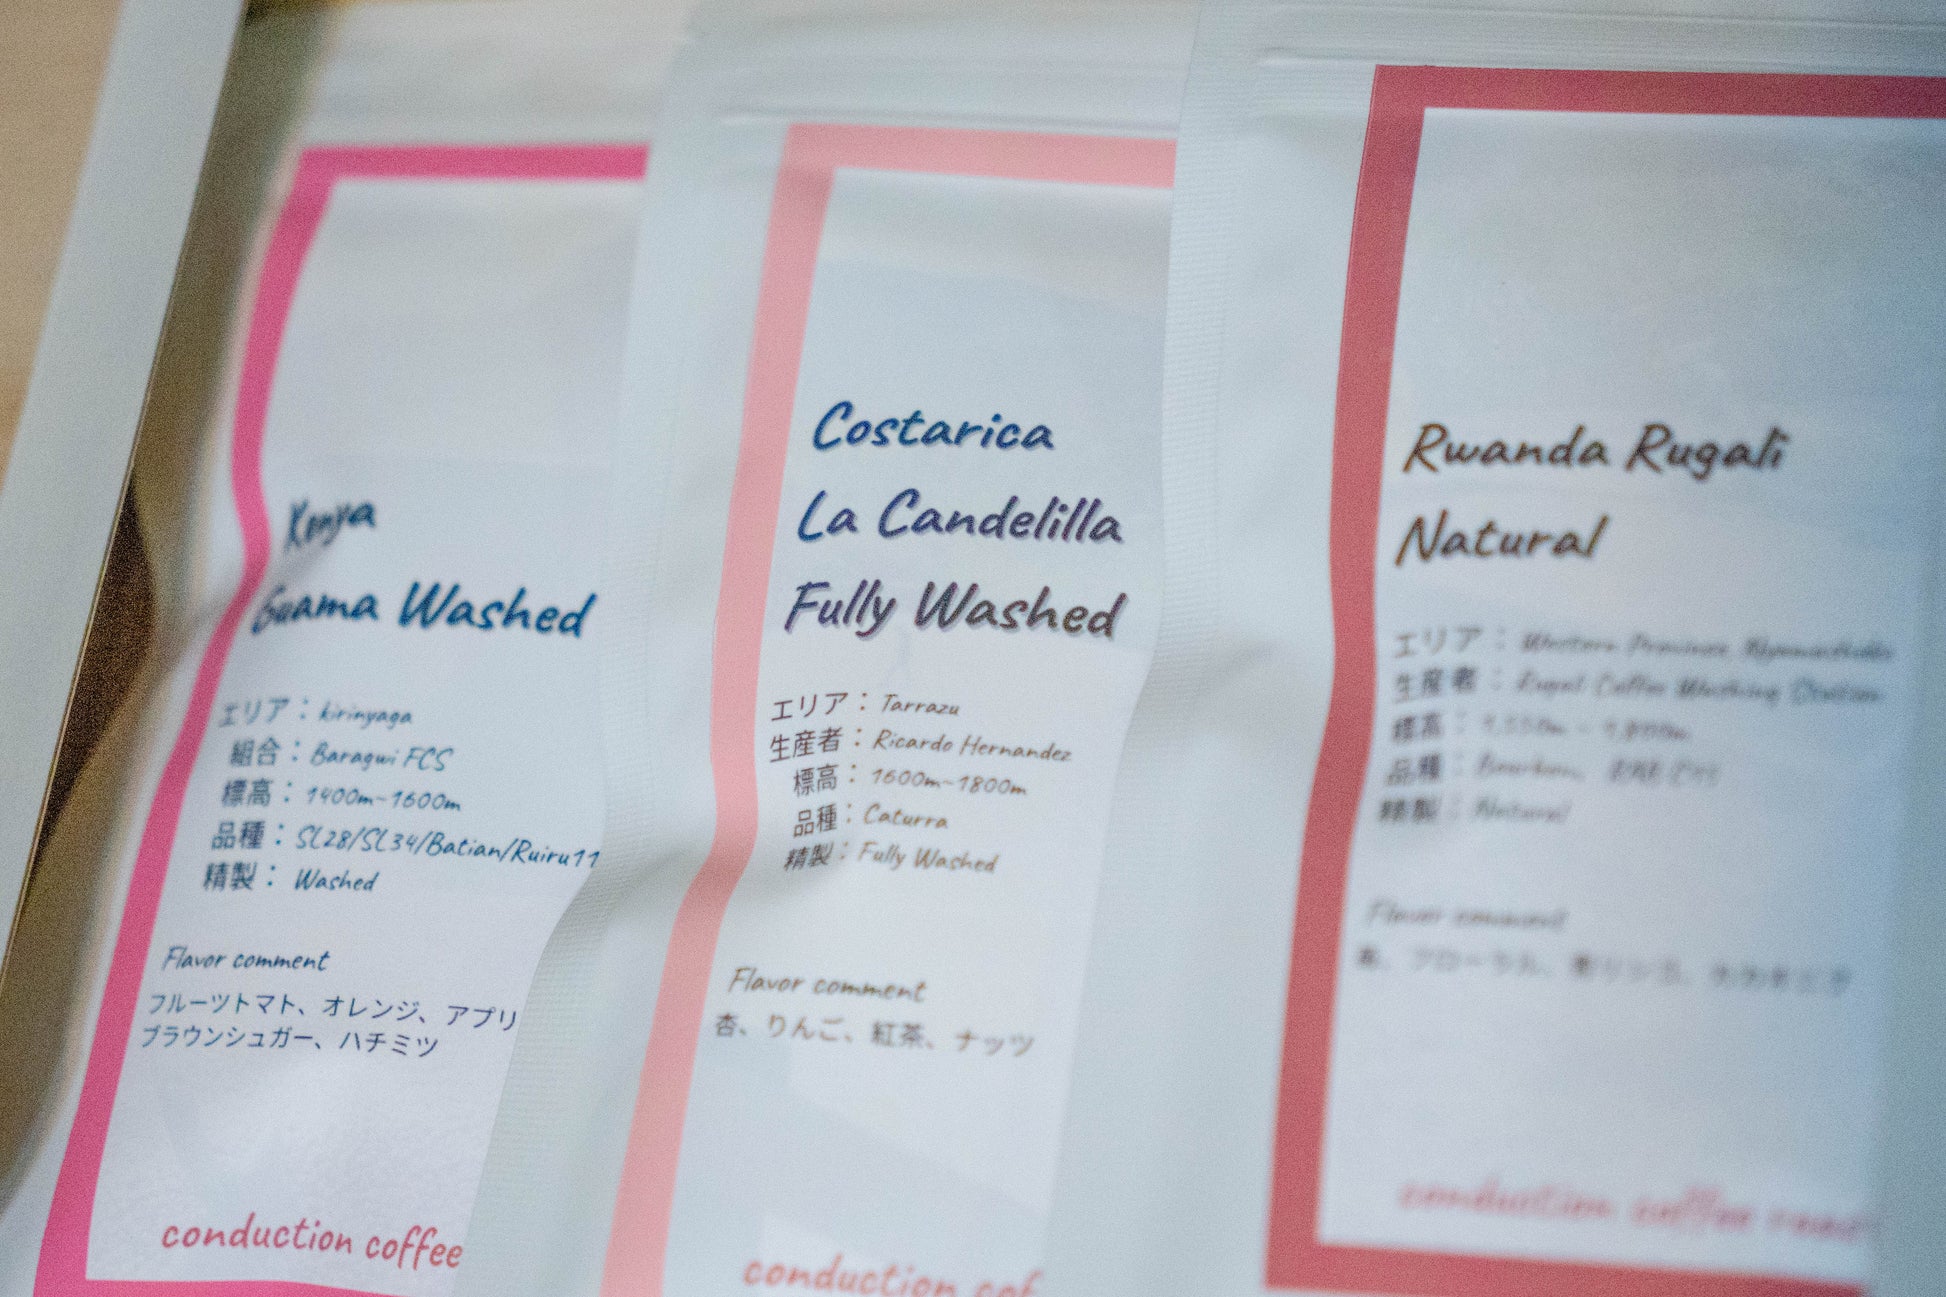 Kenya
Guama Washed
エリア：kirinyaga
組合：Baragwi FCS
標高：1400m~1600m
品種：SL28/SL34/Batian/Ruiru11
精製：Washed
Flavor comment
フルーツトマト、オレンジ、アプリ
ブラウンシュガー、ハチミツ
conduction coffee
Costarica
La Candelilla
Fully Washed
エリア：Tarrazu
生産者：Ricardo Hernandez
標高：1600m~1800m
品種：Caturra
精製：Fully Washed
Flavor comment
杏、りんご、紅茶、ナッツ
conduction cof
Rwanda Rugali
Natural
エリア：Western Province
生産者：Rugali Coffee Washing Station
標高：
品種：Bourbon,
精製：Natural
Flavor comment
フローラル、青リンゴ、
conduction coffee roas